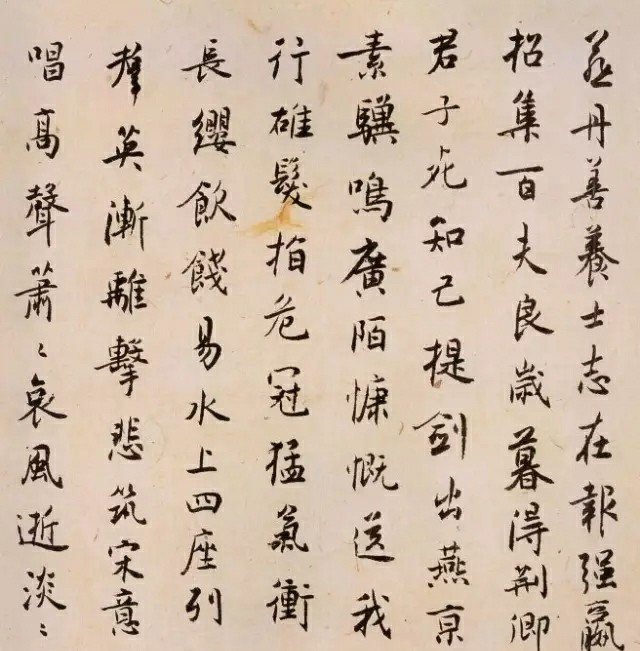 燕丹善養士志在報强嬴
招集百夫良歳暮得荆卿
君子死知己提劍出燕京
素驥鳴廣陌慷慨送我
行雄髮指危冠猛氣衝
長纓飲餞易水上四座列
羣英漸離擊悲筑宋意
唱高聲蕭〻哀風逝淡〻